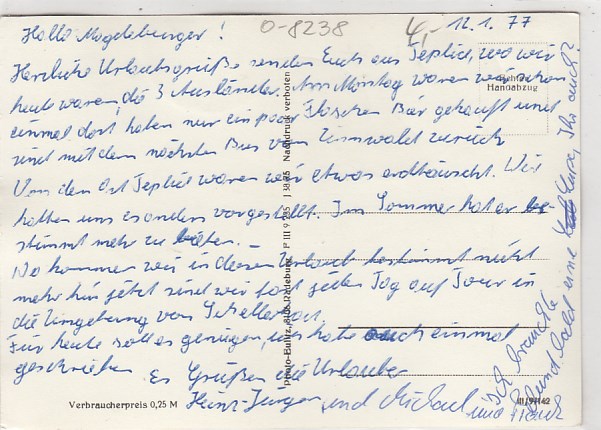 O-8238
4,-
12.1.77
Hallo Magdeburger!
Herzliche Urlaubsgrüße senden Euch aus Teplic, wo wir
heute waren, die 3 Ausländer. Am Montag waren wir schon
einmal dort haben nur ein paar Flaschen Bier gekauft und
sind mit dem nächsten Bus von Zinnwald zurück
Von dem Ort Teplic waren wir etwas enttäuscht. Wir
hatten uns es anders vorgestellt. Im Sommer hat er be-
stimmt mehr zu bieten. –
Na kommen wir in diesem Urlaub bestimmt nicht
mehr hin jetzt sind wir fast jeden Tag auf Tour in
die Umgebung von
Für heute soll es genügen, habe auch einmal
geschrieben
Es Grüßen die Urlauber
Heinz-Jürgen und Michael
und
Ich brauchte
und bald eine Ihr auch?
Echter
Handabzug
Verbraucherpreis 0,25 M
III/9/142
Nachdruck verboten